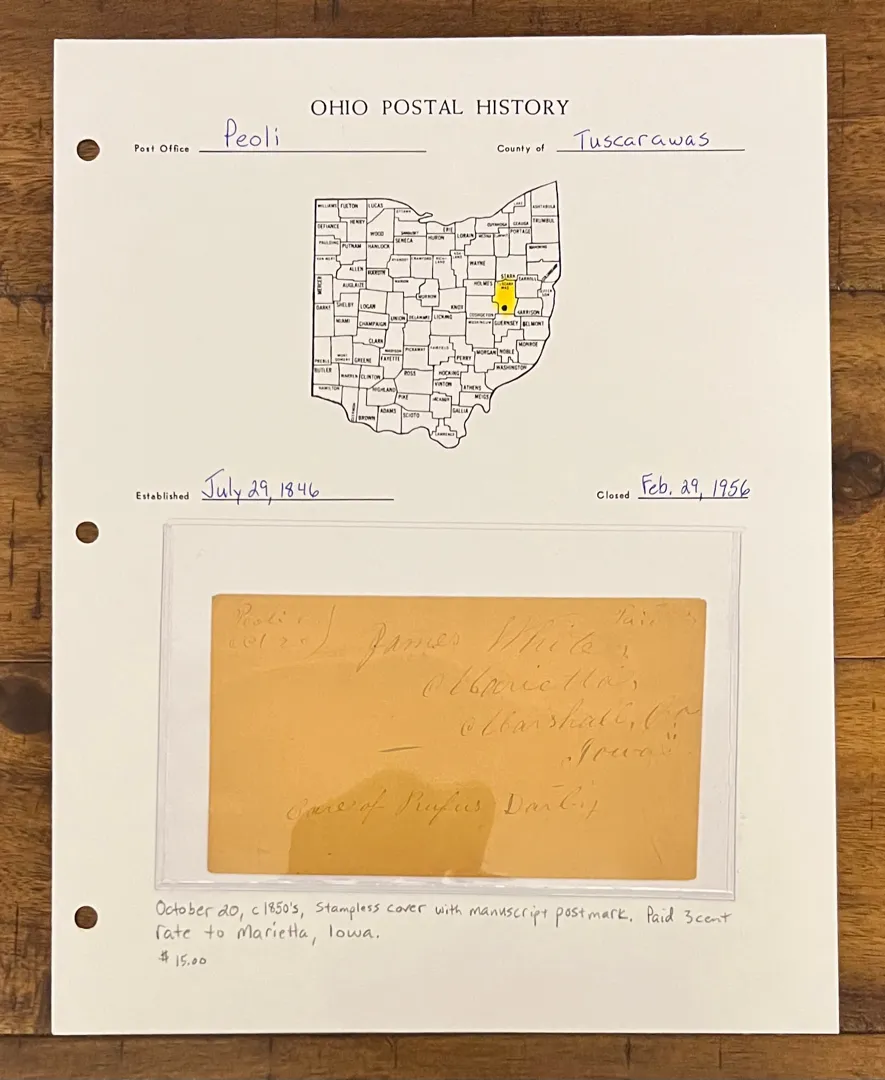 OHIO POSTAL HISTORY
Post Office Peoli County of Tuscarawas
WILLIAMS FULTON LUCAS OTTAWA ASHTABULA
DEFIANCE HENRY WOOD SANDUSKY ERIE LORAIN CUYAHOGA GEAUGA TRUMBULL
PAULDING PUTNAM HANCOCK SENECA HURON MEDINA PORTAGE
ALLEN HARDIN WAYNE STARK
MERCER AUGLAIZE MARION MORROW HOLMES TUSCARAWAS CARROLL
DARKE SHELBY LOGAN UNION DELAWARE KNOX LICKING COSHOCTON HARRISON
MIAMI CHAMPAIGN GUERNSEY BELMONT
CLARK MADISON PICKAWAY FAIRFIELD PERRY MORGAN NOBLE MONROE
PREBLE GREENE FAYETTE WASHINGTON
BUTLER WARREN CLINTON ROSS HOCKING
HAMILTON HIGHLAND PIKE VINTON ATHENS MEIGS
BROWN ADAMS SCIOTO JACKSON GALLIA
LAWRENCE
Established July 29, 1846 Closed Feb. 29, 1956
Peoli
James White
Marietta
Marshall, Co
Iowa
Care of Rufus Darby
October 20, c1850's, Stampless cover with manuscript postmark. Paid 3cent
rate to Marietta, Iowa.
$15.00